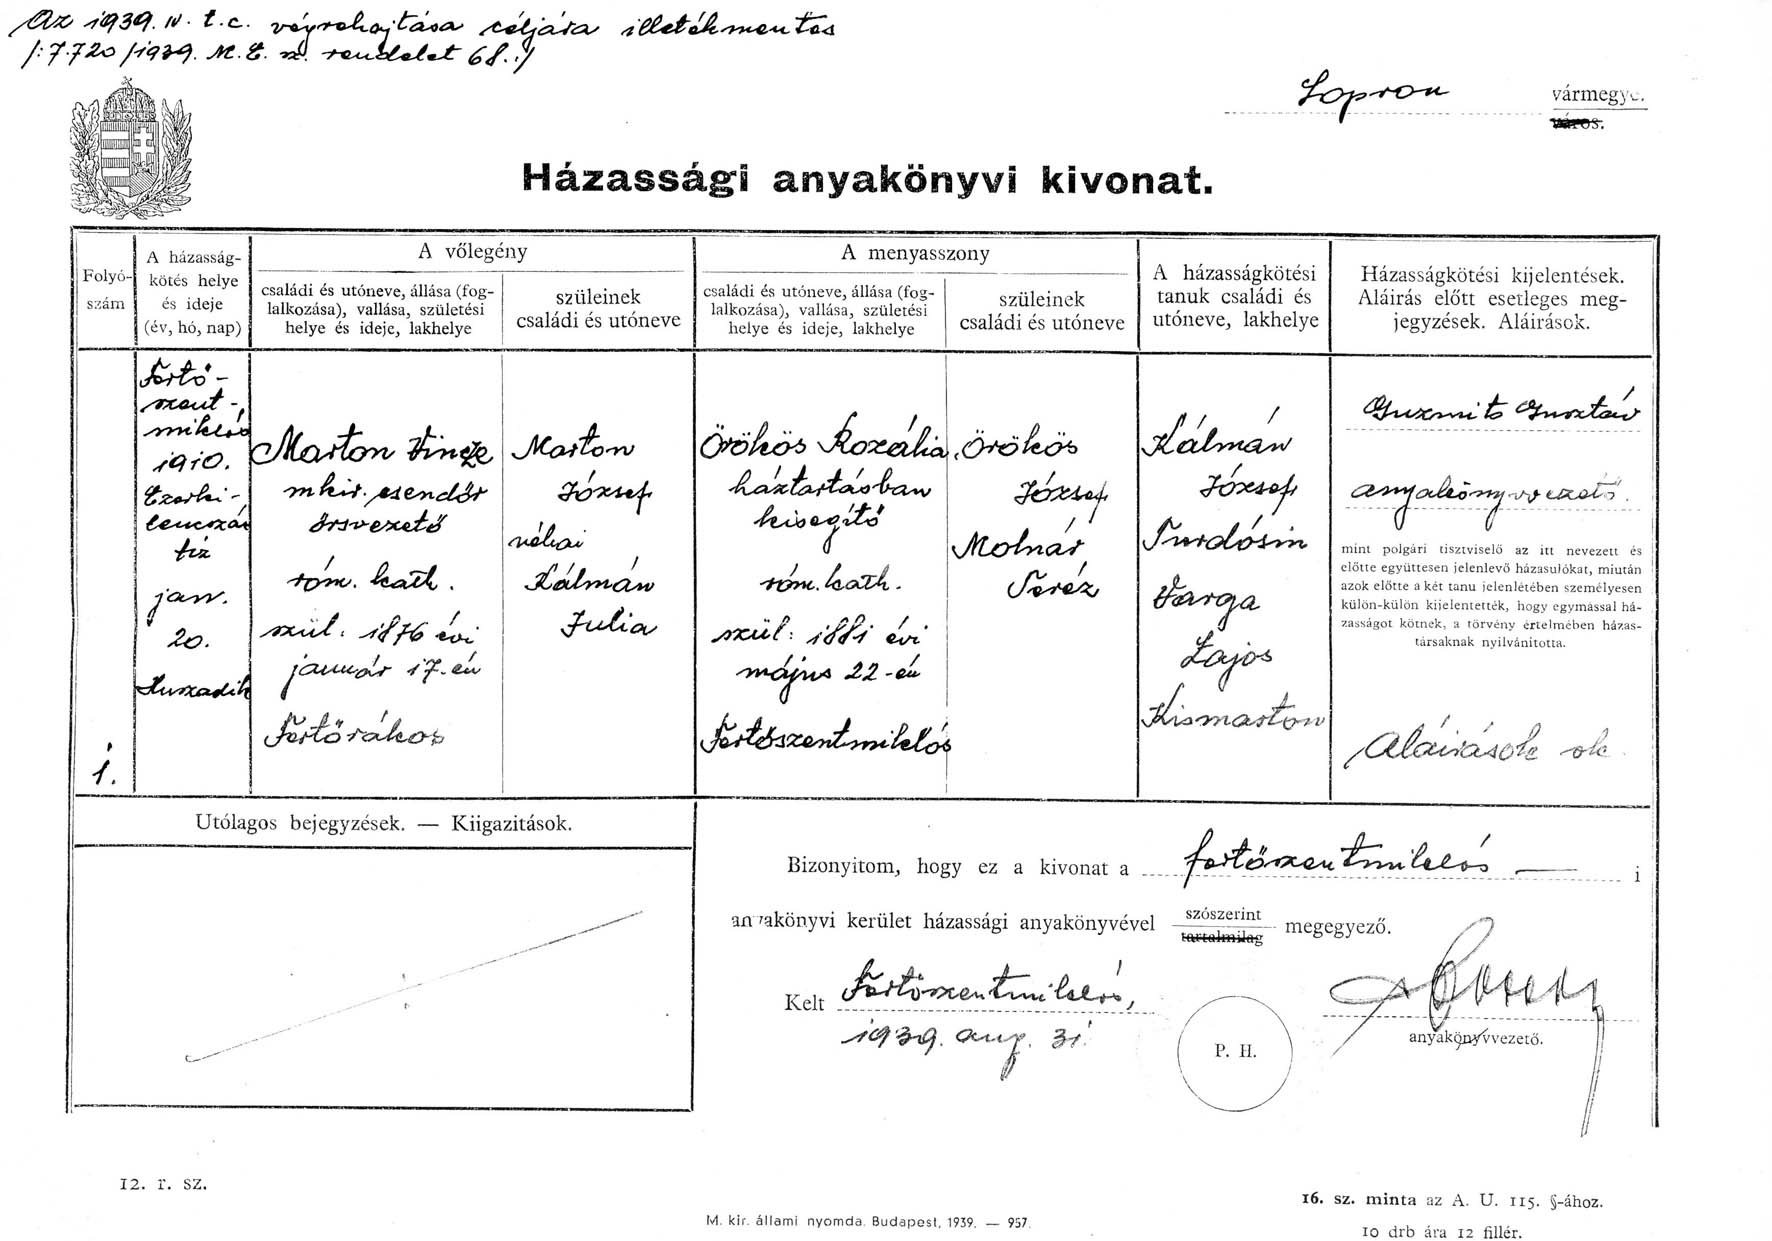 Az 1939. IV. t.c. végrehajtása céljára illetékmentes
/:7.720/1939. M.E. sz. rendelet 68.:/
Sopron vármegye.
város.
Házassági anyakönyvi kivonat.
Folyó-
szám
A házasság-
kötés helye
és ideje
(év, hó, nap)
A vőlegény
családi és utóneve, állása (fog-
lalkozása), vallása, születési
helye és ideje, lakhelye
szüleinek
családi és utóneve
A menyasszony
családi és utóneve, állása (fog-
lalkozása), vallása, születési
helye és ideje, lakhelye
szüleinek
családi és utóneve
A házasságkötési
tanuk családi és
utóneve, lakhelye
Házasságkötési kijelentések.
Aláirás előtt esetleges meg-
jegyzések. Aláirások.
1.
Fertő-
szent-
miklós
1910.
Ezerki-
lencszáz
tiz
jan.
20.
Huszadik
Marton Vincze
mkir. csendőr
őrsvezető
róm. kath.
szül: 1876 évi
január 17-én
Fertőrákos
Marton
József
néhai
Kálmán
Julia
Örökös Rozália
háztartásban
kisegítő
róm. kath.
szül: 1881 évi
május 22-én
Fertőszentmiklós
Örökös
József
Molnár
Teréz
Kálmán
József
Turdósin
Varga
Lajos
Kismarton
Guzmits Gusztáv
anyakönyvvezető.
mint polgári tisztviselő az itt nevezett és
előtte együttesen jelenlevő házasulókat, miután
azok előtte a két tanu jelenlétében személyesen
külön-külön kijelentették, hogy egymással há-
zasságot kötnek, a törvény értelmében házas-
társaknak nyilvánitotta.
Aláirások ok.
Utólagos bejegyzések. — Kiigazitások.
Bizonyitom, hogy ez a kivonat a fertőszentmiklós — i
anyakönyvi kerület házassági anyakönyvével szószerint megegyező.
tartalmilag
Kelt Fertőszentmiklós,
1939. aug. 31.
P. H.
anyakönyvvezető.
12. r. sz.
M. kir. állami nyomda. Budapest, 1939. — 957.
16. sz. minta az A. U. 115. §-ához.
10 drb ára 12 fillér.